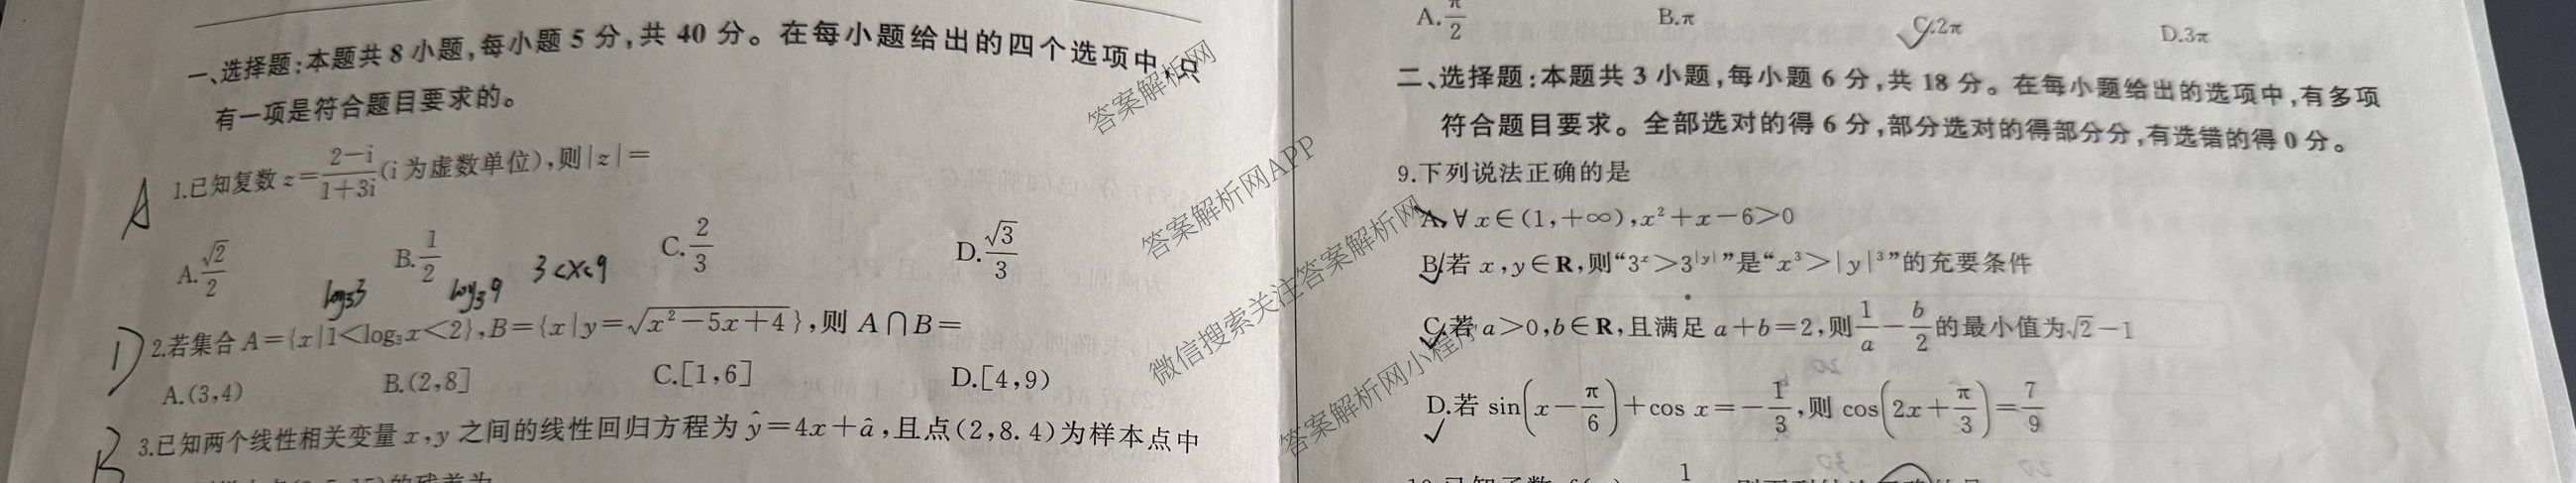 一、选择题:本题共 8 小题,每小题 5 分,共 40 分。在每小题给出的四个选项中,
有一项是符合题目要求的。
A
1.已知复数 z=\frac{2-i}{1+3i}(i 为虚数单位),则|z|=
A.\frac{\sqrt{2}}{2} B.\frac{1}{2} C.\frac{2}{3} D.\frac{\sqrt{3}}{3}
log₃3 log₃9 3<x<9
D
2.若集合 A={x|1<log₃x<2},B={x|y=\sqrt{x²-5x+4}},则 A∩B=
A.(3,4) B.(2,8] C.[1,6] D.[4,9)
B
3.已知两个线性相关变量 x,y 之间的线性回归方程为 ŷ=4x+â,且点(2,8.4)为样本点中
的残差为
A.\frac{π}{2} B.π C.2π D.3π
二、选择题:本题共 3 小题,每小题 6 分,共 18 分。在每小题给出的选项中,有多项
符合题目要求。全部选对的得 6 分,部分选对的得部分分,有选错的得 0 分。
9.下列说法正确的是
A.∀x∈(1,+∞),x²+x-6>0
B.若 x,y∈R,则“3ˣ>3^{|y|}”是“x³>|y|³”的充要条件
C.若 a>0,b∈R,且满足 a+b=2,则\frac{1}{a}-\frac{b}{2}的最小值为\sqrt{2}-1
D.若 sin(x-\frac{π}{6})+cos x=-\frac{1}{3},则 cos(2x+\frac{π}{3})=\frac{7}{9}
答案解析网
答案解析网APP
微信搜索关注答案解析网
答案解析网小程序